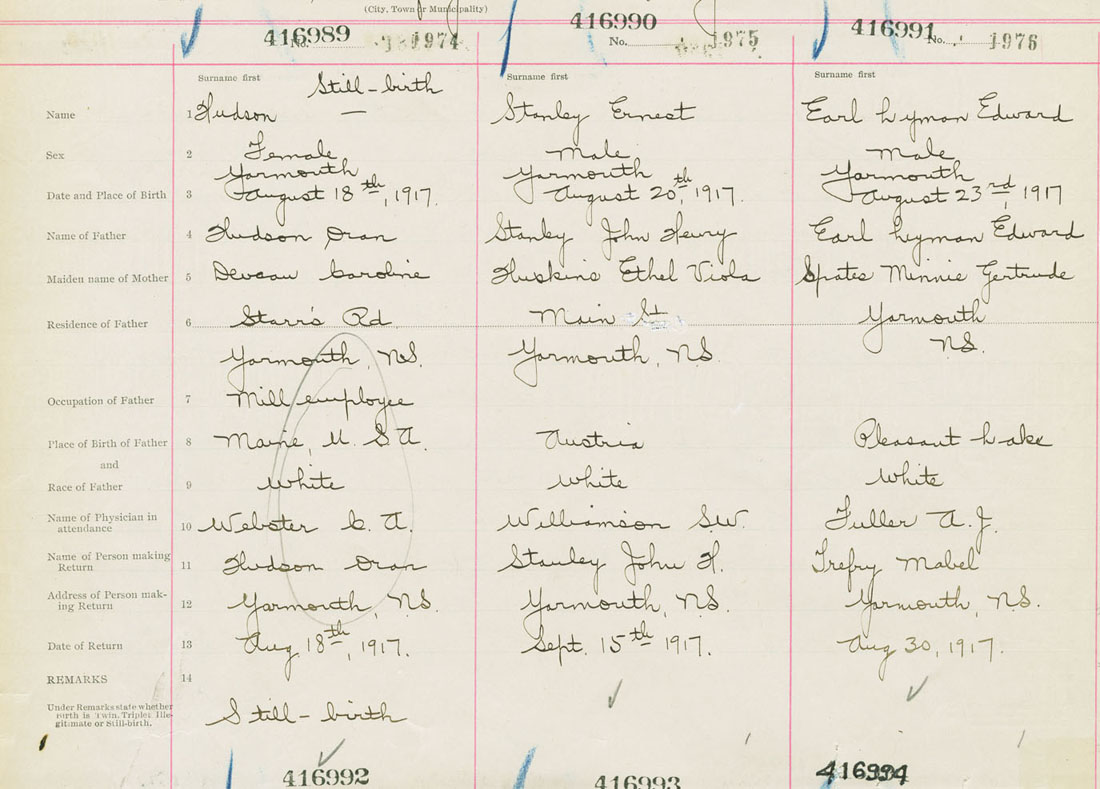 (City, Town or Municipality)
416989 No. 1974
416990 No. 1975
416991 No. 1976
Surname first Surname first Surname first
Still-birth
Name 1 Hudson — Stanley Ernest Earl Lyman Edward
Sex 2 Female Male Male
Yarmouth Yarmouth Yarmouth
Date and Place of Birth 3 August 18th, 1917. August 20th, 1917. August 23rd, 1917
Name of Father 4 Hudson Oran Stanley John Henry Earl Lyman Edward
Maiden name of Mother 5 Deveau Caroline Huskins Ethel Viola Spates Minnie Gertrude
Residence of Father 6 Starr's Rd. Main St. Yarmouth
Yarmouth, N.S. Yarmouth, N.S. N.S.
Occupation of Father 7 Mill employee
Place of Birth of Father 8 Maine, U. S. A. Austria Pleasant Lake
and
Race of Father 9 White White White
Name of Physician in
attendance 10 Webster C. A. Williamson S.W. Fuller A. J.
Name of Person making
Return 11 Hudson Oran Stanley John H. Trefry Mabel
Address of Person mak-
ing Return 12 Yarmouth, N.S. Yarmouth, N.S. Yarmouth, N.S.
Date of Return 13 Aug. 18th, 1917. Sept. 15th 1917. Aug 30, 1917.
REMARKS 14
Under Remarks state whether
birth is Twin, Triplet Ille-
gitimate or Still-birth.
Still-birth
416992 416993 416994